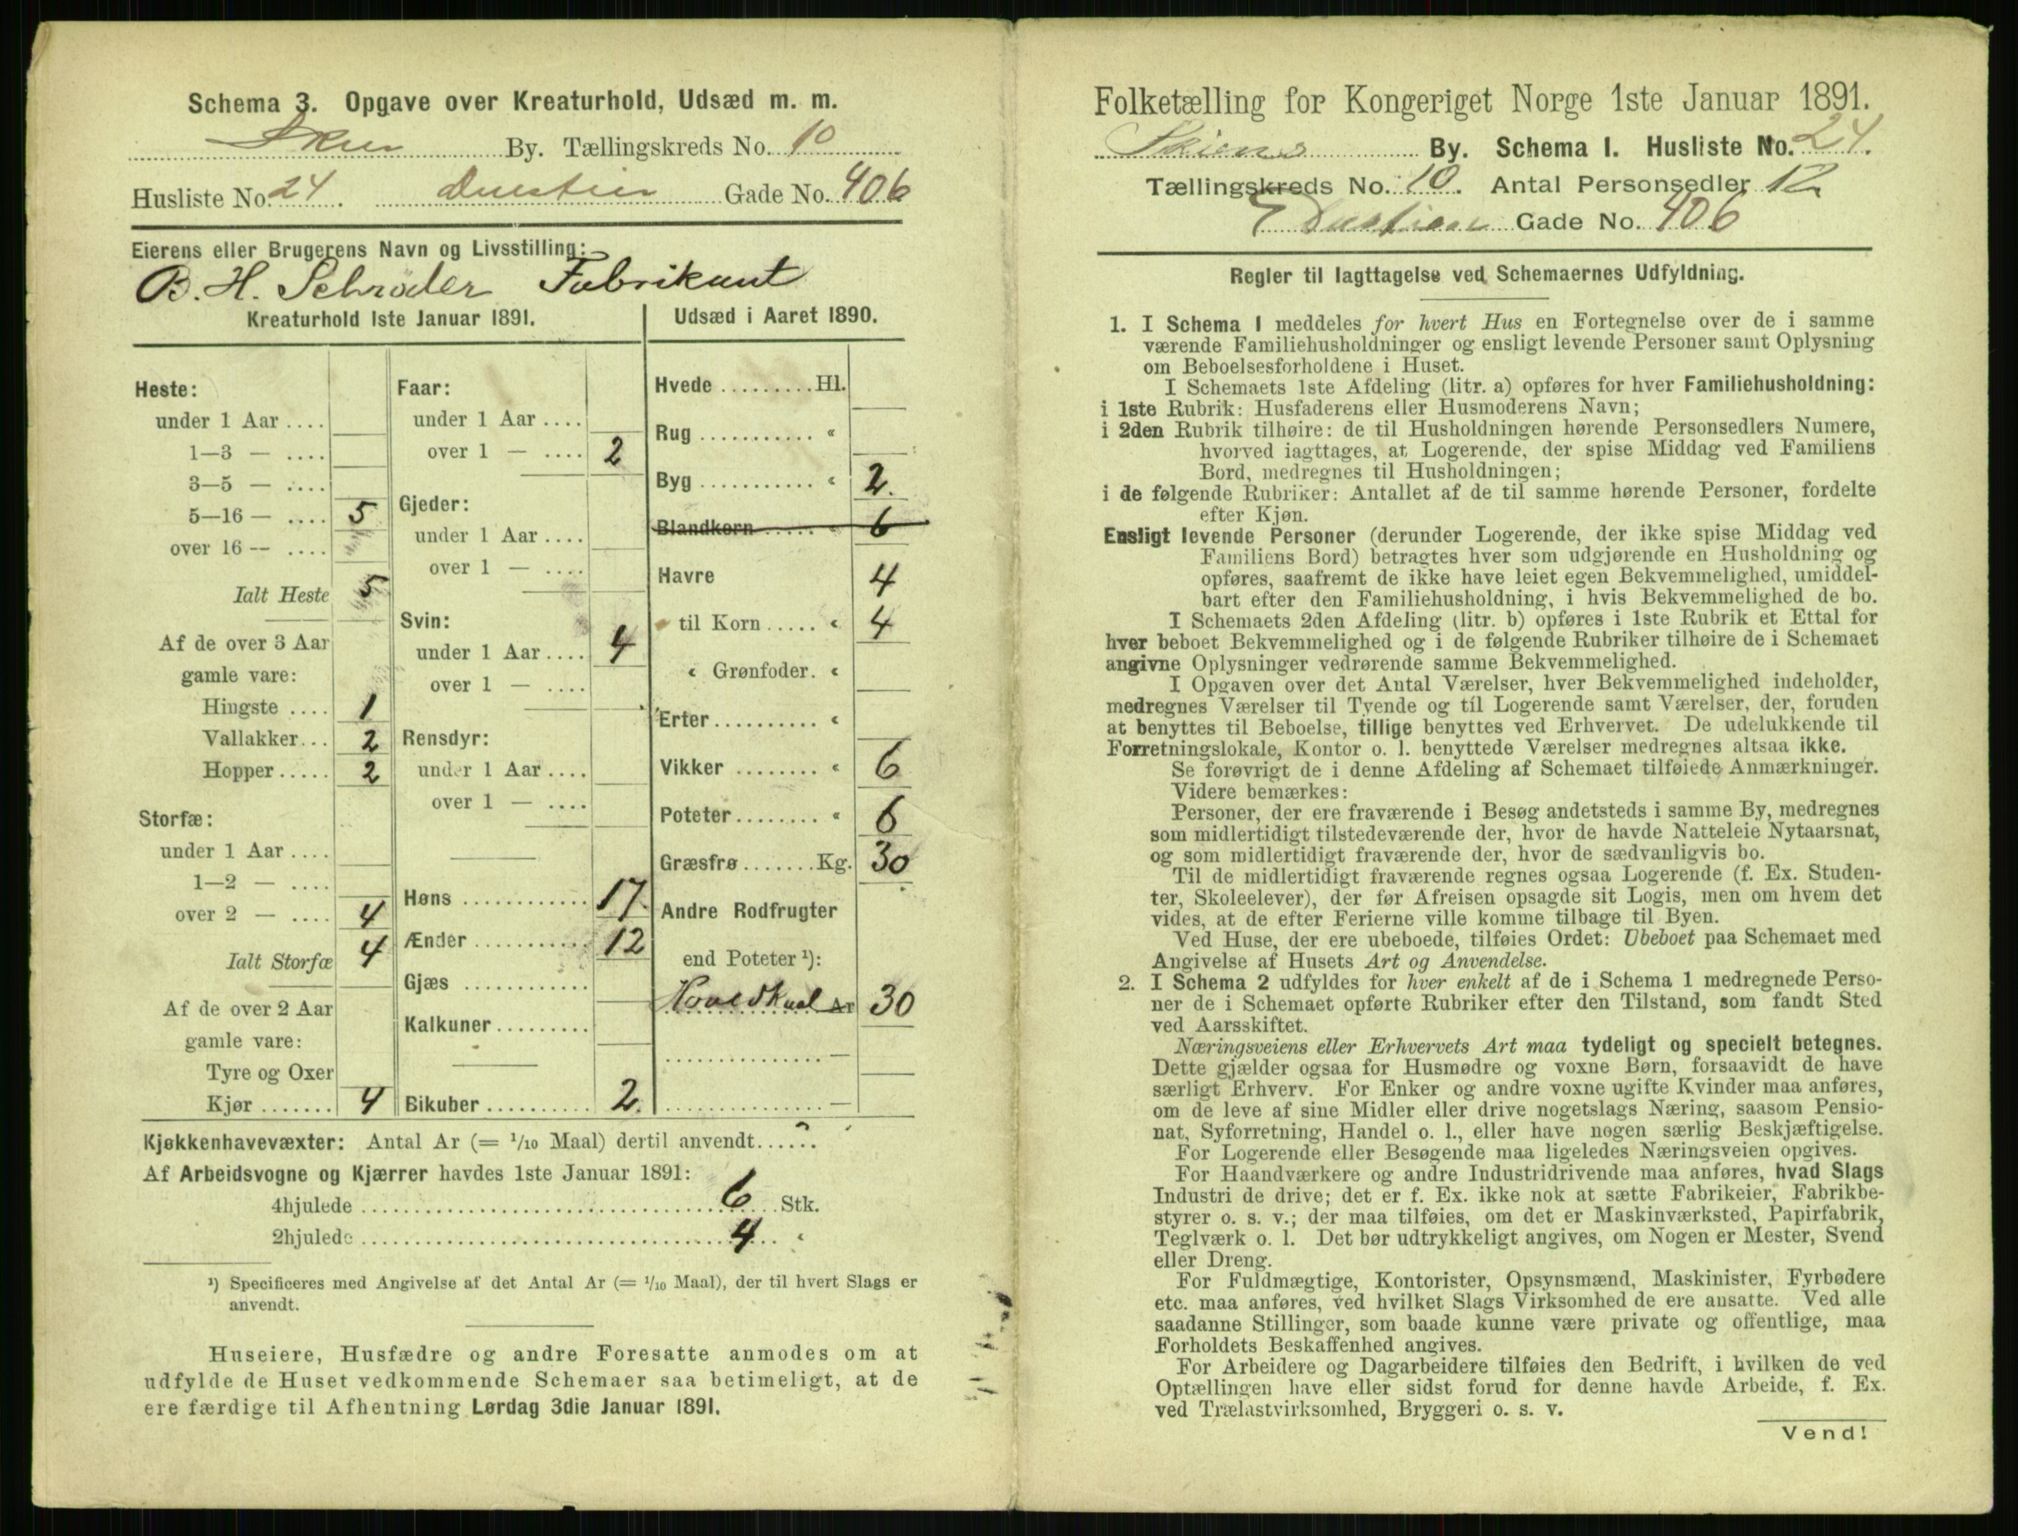 Schema 3. Opgave over Kreaturhold, Udsæd m. m.
Skien By. Tællingskreds No. 10
Husliste No. 24. Duestien Gade No. 406
Eierens eller Brugerens Navn og Livsstilling:
B. H. Schrøder Fabrikant
Kreaturhold 1ste Januar 1891.
Heste:
under 1 Aar ....
1—3 — ....
3—5 — ....
5—16 — .... 5
over 16 — ....
Ialt Heste 5
Af de over 3 Aar
gamle vare:
Hingste .... 1
Vallakker... 2
Hopper ..... 2
Storfæ:
under 1 Aar ....
1—2 — ....
over 2 — .... 4
Ialt Storfæ 4
Af de over 2 Aar
gamle vare:
Tyre og Oxer
Kjør ....... 4
Faar:
under 1 Aar ....
over 1 — .... 2
Gjeder:
under 1 Aar ....
over 1 — ....
Svin:
under 1 Aar .... 4
over 1 — ....
Rensdyr:
under 1 Aar ....
over 1 — ....
Høns ............ 17.
Ænder ........... 12
Gjæs ............
Kalkuner.........
Bikuber .......... 2.
Udsæd i Aaret 1890.
Hvede ......... Hl.
Rug ........... «
Byg ........... « 2.
Blandkorn ..... « 6
Havre 4
til Korn ..... « 4
« Grønfoder. «
Erter.......... «
Vikker ........ « 6
Poteter........ « 6
Græsfrø ....... Kg. 30
Andre Rodfrugter
end Poteter ¹):
Ar 30
Kjøkkenhavevæxter: Antal Ar (= 1/10 Maal) dertil anvendt......
Af Arbeidsvogne og Kjærrer havdes 1ste Januar 1891:
4hjulede ........ 6 Stk.
2hjulede ........ 4 «
¹) Specificeres med Angivelse af det Antal Ar (= 1/10 Maal), der til hvert Slags er
anvendt.
Huseiere, Husfædre og andre Foresatte anmodes om at
udfylde de Huset vedkommende Schemaer saa betimeligt, at de
ere færdige til Afhentning Lørdag 3die Januar 1891.
Folketælling for Kongeriget Norge 1ste Januar 1891.
Skiens By. Schema I. Husliste No. 24.
Tællingskreds No. 10. Antal Personsedler 12
Duestien Gade No. 406
Regler til Iagttagelse ved Schemaernes Udfyldning.
1. I Schema 1 meddeles for hvert Hus en Fortegnelse over de i samme
værende Familiehusholdninger og ensligt levende Personer samt Oplysning
om Beboelsesforholdene i Huset.
I Schemaets 1ste Afdeling (litr. a) opføres for hver Familiehusholdning:
i 1ste Rubrik: Husfaderens eller Husmoderens Navn;
i 2den Rubrik tilhøire: de til Husholdningen hørende Personsedlers Numere,
hvorved iagttages, at Logerende, der spise Middag ved Familiens
Bord, medregnes til Husholdningen;
i de følgende Rubriker: Antallet af de til samme hørende Personer, fordelte
efter Kjøn.
Ensligt levende Personer (derunder Logerende, der ikke spise Middag ved
Familiens Bord) betragtes hver som udgjørende en Husholdning og
opføres, saafremt de ikke have leiet egen Bekvemmelighed, umiddel-
bart efter den Familiehusholdning, i hvis Bekvemmelighed de bo.
I Schemaets 2den Afdeling (litr. b) opføres i 1ste Rubrik et Ettal for
hver beboet Bekvemmelighed og i de følgende Rubriker tilhøire de i Schemaet
angivne Oplysninger vedrørende samme Bekvemmelighed.
I Opgaven over det Antal Værelser, hver Bekvemmelighed indeholder,
medregnes Værelser til Tyende og til Logerende samt Værelser, der, foruden
at benyttes til Beboelse, tillige benyttes ved Erhvervet. De udelukkende til
Forretningslokale, Kontor o. l. benyttede Værelser medregnes altsaa ikke.
Se forøvrigt de i denne Afdeling af Schemaet tilføiede Anmærkninger.
Videre bemærkes:
Personer, der ere fraværende i Besøg andetsteds i samme By, medregnes
som midlertidigt tilstedeværende der, hvor de havde Natteleie Nytaarsnat,
og som midlertidigt fraværende der, hvor de sædvanligvis bo.
Til de midlertidigt fraværende regnes ogsaa Logerende (f. Ex. Studen-
ter, Skoleelever), der før Afreisen opsagde sit Logis, men om hvem det
vides, at de efter Ferierne ville komme tilbage til Byen.
Ved Huse, der ere ubeboede, tilføies Ordet: Ubeboet paa Schemaet med
Angivelse af Husets Art og Anvendelse.
2. I Schema 2 udfyldes for hver enkelt af de i Schema 1 medregnede Perso-
ner de i Schemaet opførte Rubriker efter den Tilstand, som fandt Sted
ved Aarsskiftet.
Næringsveiens eller Erhvervets Art maa tydeligt og specielt betegnes.
Dette gjælder ogsaa for Husmødre og voxne Børn, forsaavidt de have
særligt Erhverv. For Enker og andre voxne ugifte Kvinder maa anføres,
om de leve af sine Midler eller drive nogetslags Næring, saasom Pensio-
nat, Syforretning, Handel o. l., eller have nogen særlig Beskjæftigelse.
For Logerende eller Besøgende maa ligeledes Næringsveien opgives.
For Haandværkere og andre Industridrivende maa anføres, hvad Slags
Industri de drive; det er f. Ex. ikke nok at sætte Fabrikeier, Fabrikbe-
styrer o. s. v.; der maa tilføies, om det er Maskinværksted, Papirfabrik,
Teglværk o. l. Det bør udtrykkeligt angives, om Nogen er Mester, Svend
eller Dreng.
For Fuldmægtige, Kontorister, Opsynsmænd, Maskinister, Fyrbødere
etc. maa anføres, ved hvilket Slags Virksomhed de ere ansatte. Ved alle
saadanne Stillinger, som baade kunne være private og offentlige, maa
Forholdets Beskaffenhed angives.
For Arbeidere og Dagarbeidere tilføies den Bedrift, i hvilken de ved
Optællingen have eller sidst forud for denne havde Arbeide, f. Ex.
ved Trælastvirksomhed, Bryggeri o. s. v.
Vend!